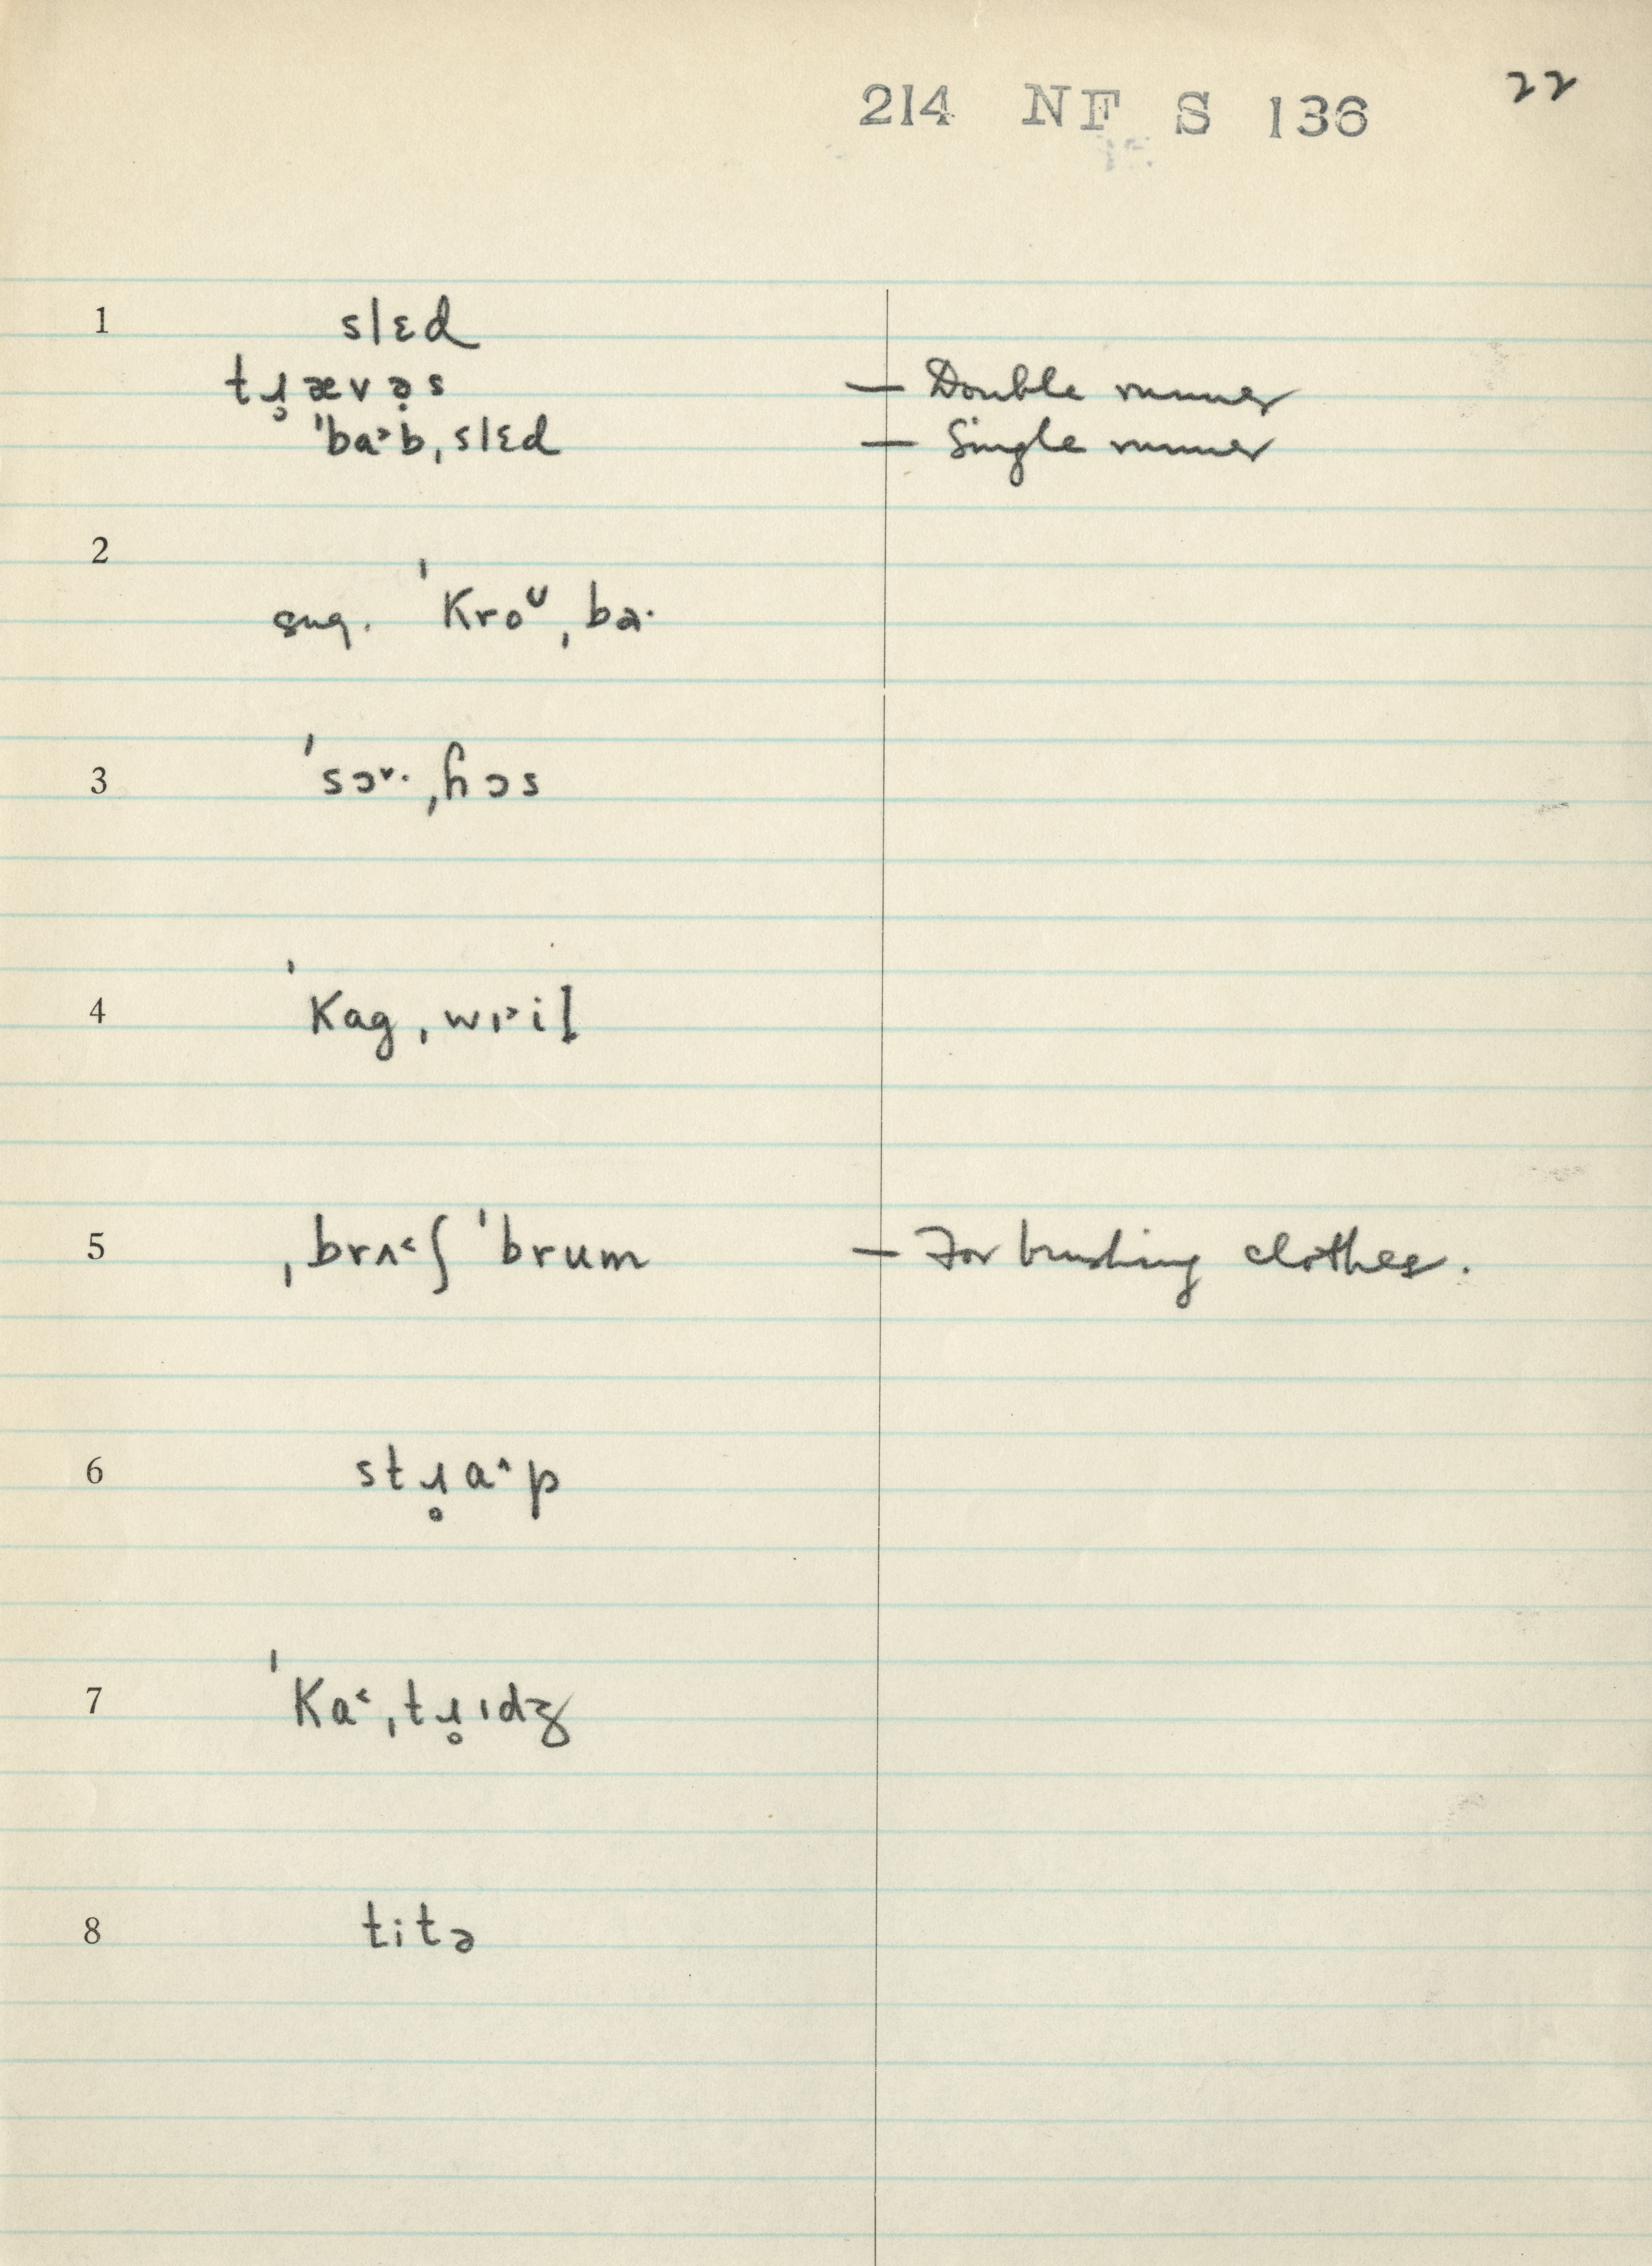 214 NF S 136 22
1 slɛd
tɹ̥ævə̣s — Double runner
ˈba˃b,slɛd — Single runner
2
sug. ˈKroᵁˌba·
3 ˈsɔ˅·ˌɦɔs
4 ˈKagˌwɪ˃iɫ
5 ˌbrʌ˂ʃ ˈbrum — For brushing clothes.
6 stɹ̥a˄p
7 ˈKa˂ˌtɹ̥ɪdʒ
8 titə